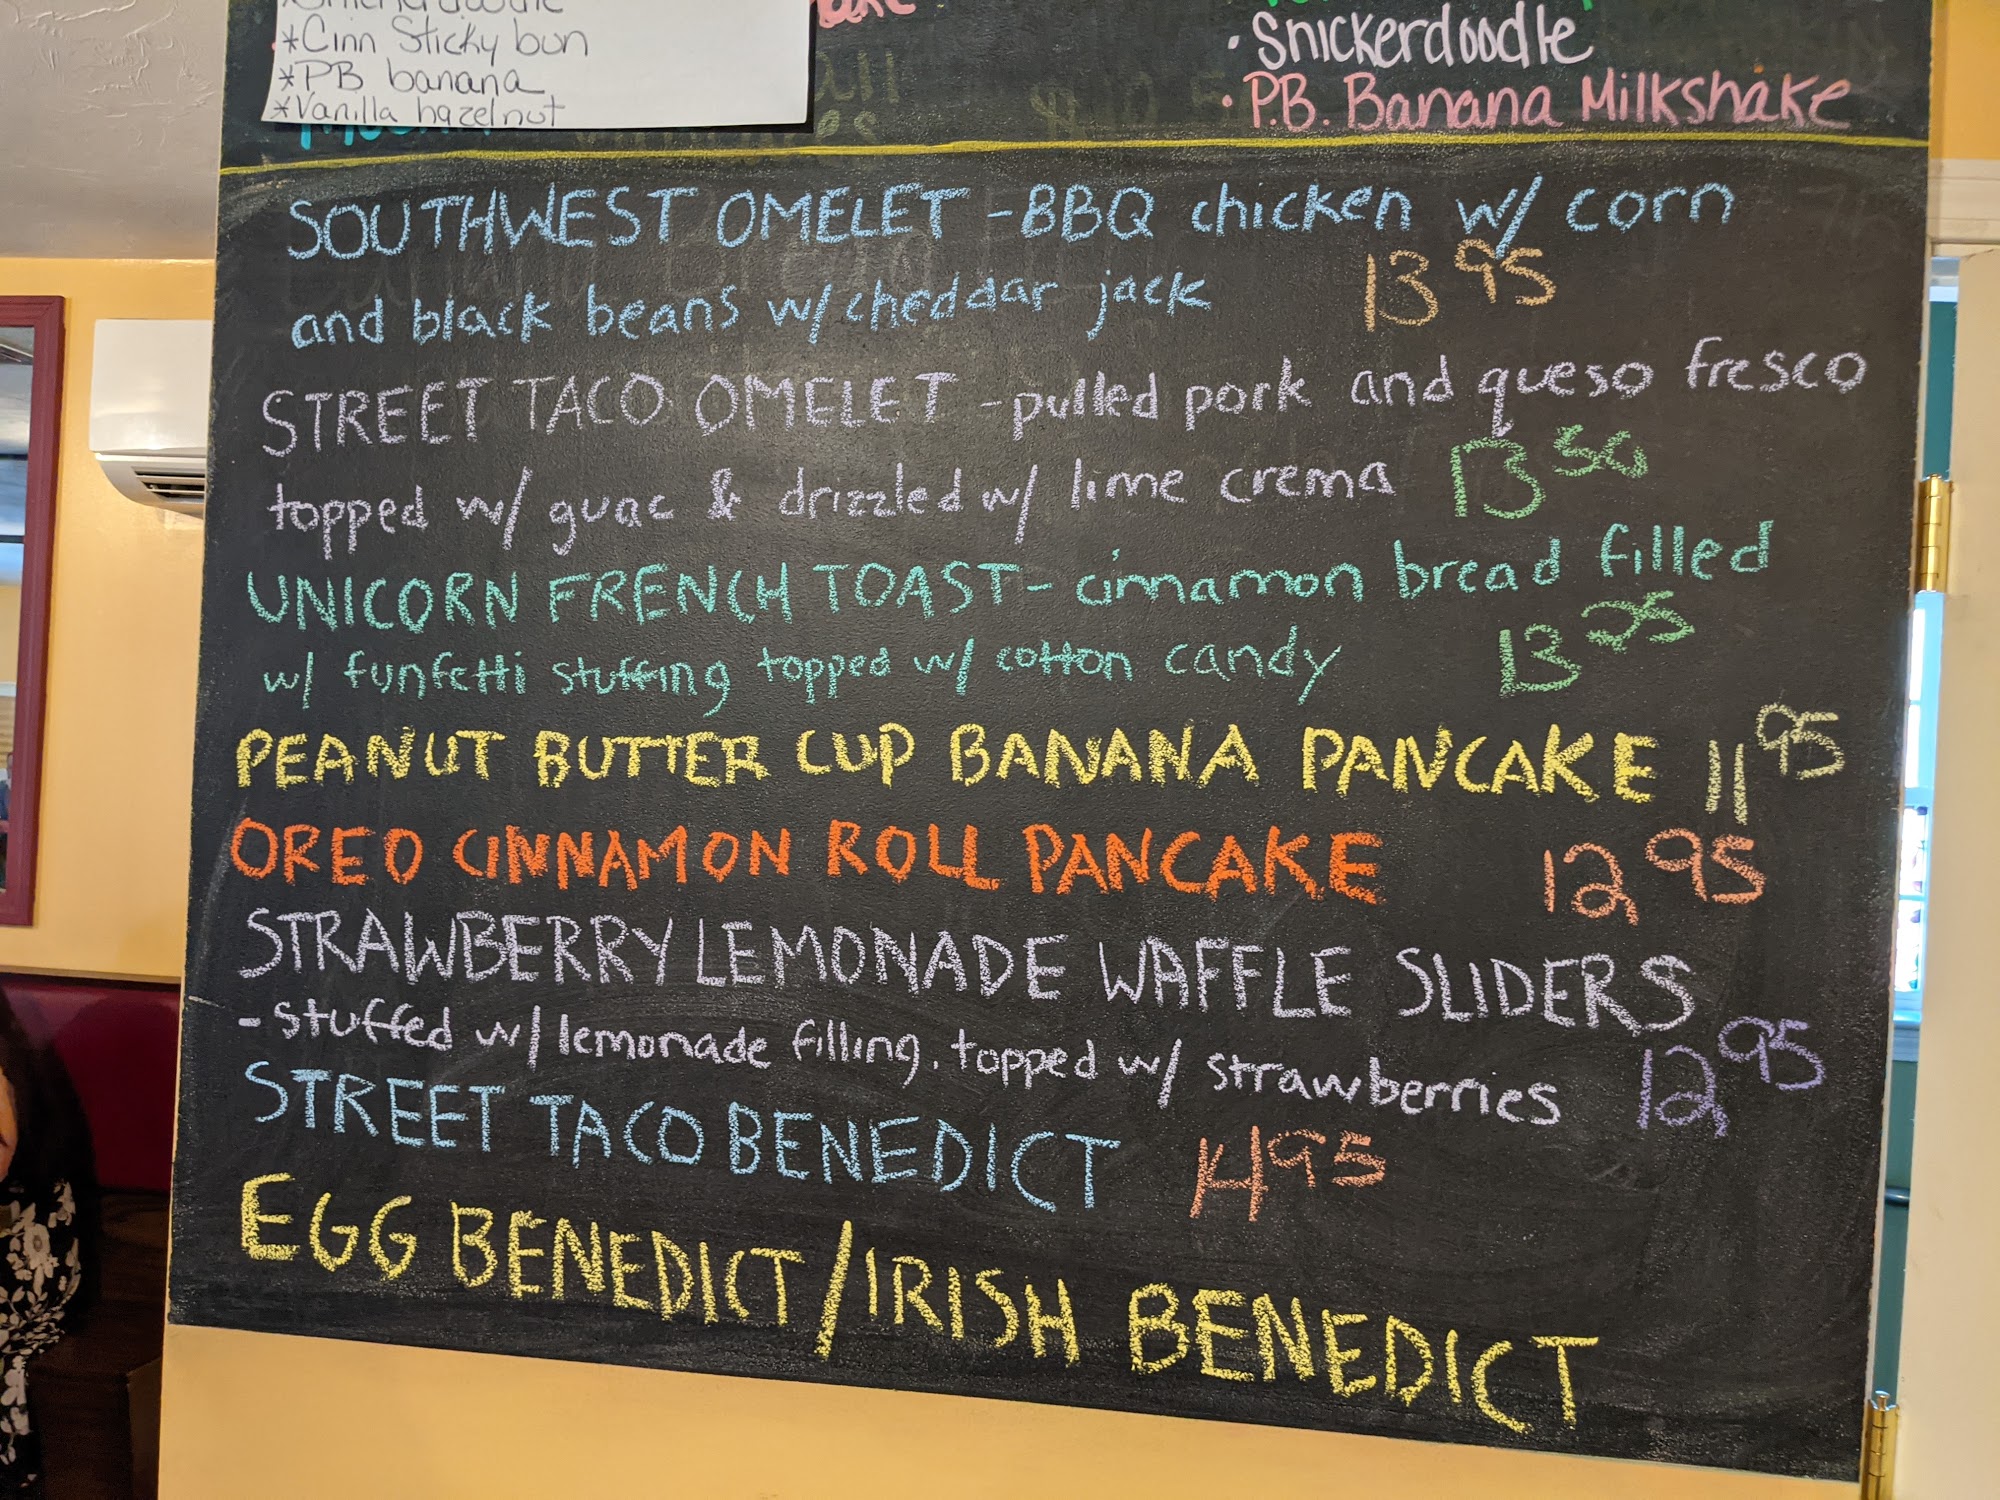 *Cinn Sticky bun
*PB banana
*Vanilla hazelnut
• Snickerdoodle
• P.B. Banana Milkshake
SOUTHWEST OMELET - BBQ chicken w/ corn
and black beans w/ cheddar jack 13 95
STREET TACO OMELET - pulled pork and queso fresco
topped w/ guac & drizzled w/ lime crema 13 50
UNICORN FRENCH TOAST - cinnamon bread filled
w/ funfetti stuffing topped w/ cotton candy 13 25
PEANUT BUTTER CUP BANANA PANCAKE 11 95
OREO CINNAMON ROLL PANCAKE 12 95
STRAWBERRY LEMONADE WAFFLE SLIDERS
- stuffed w/ lemonade filling. topped w/ strawberries 12 95
STREET TACO BENEDICT 14 95
EGG BENEDICT / IRISH BENEDICT